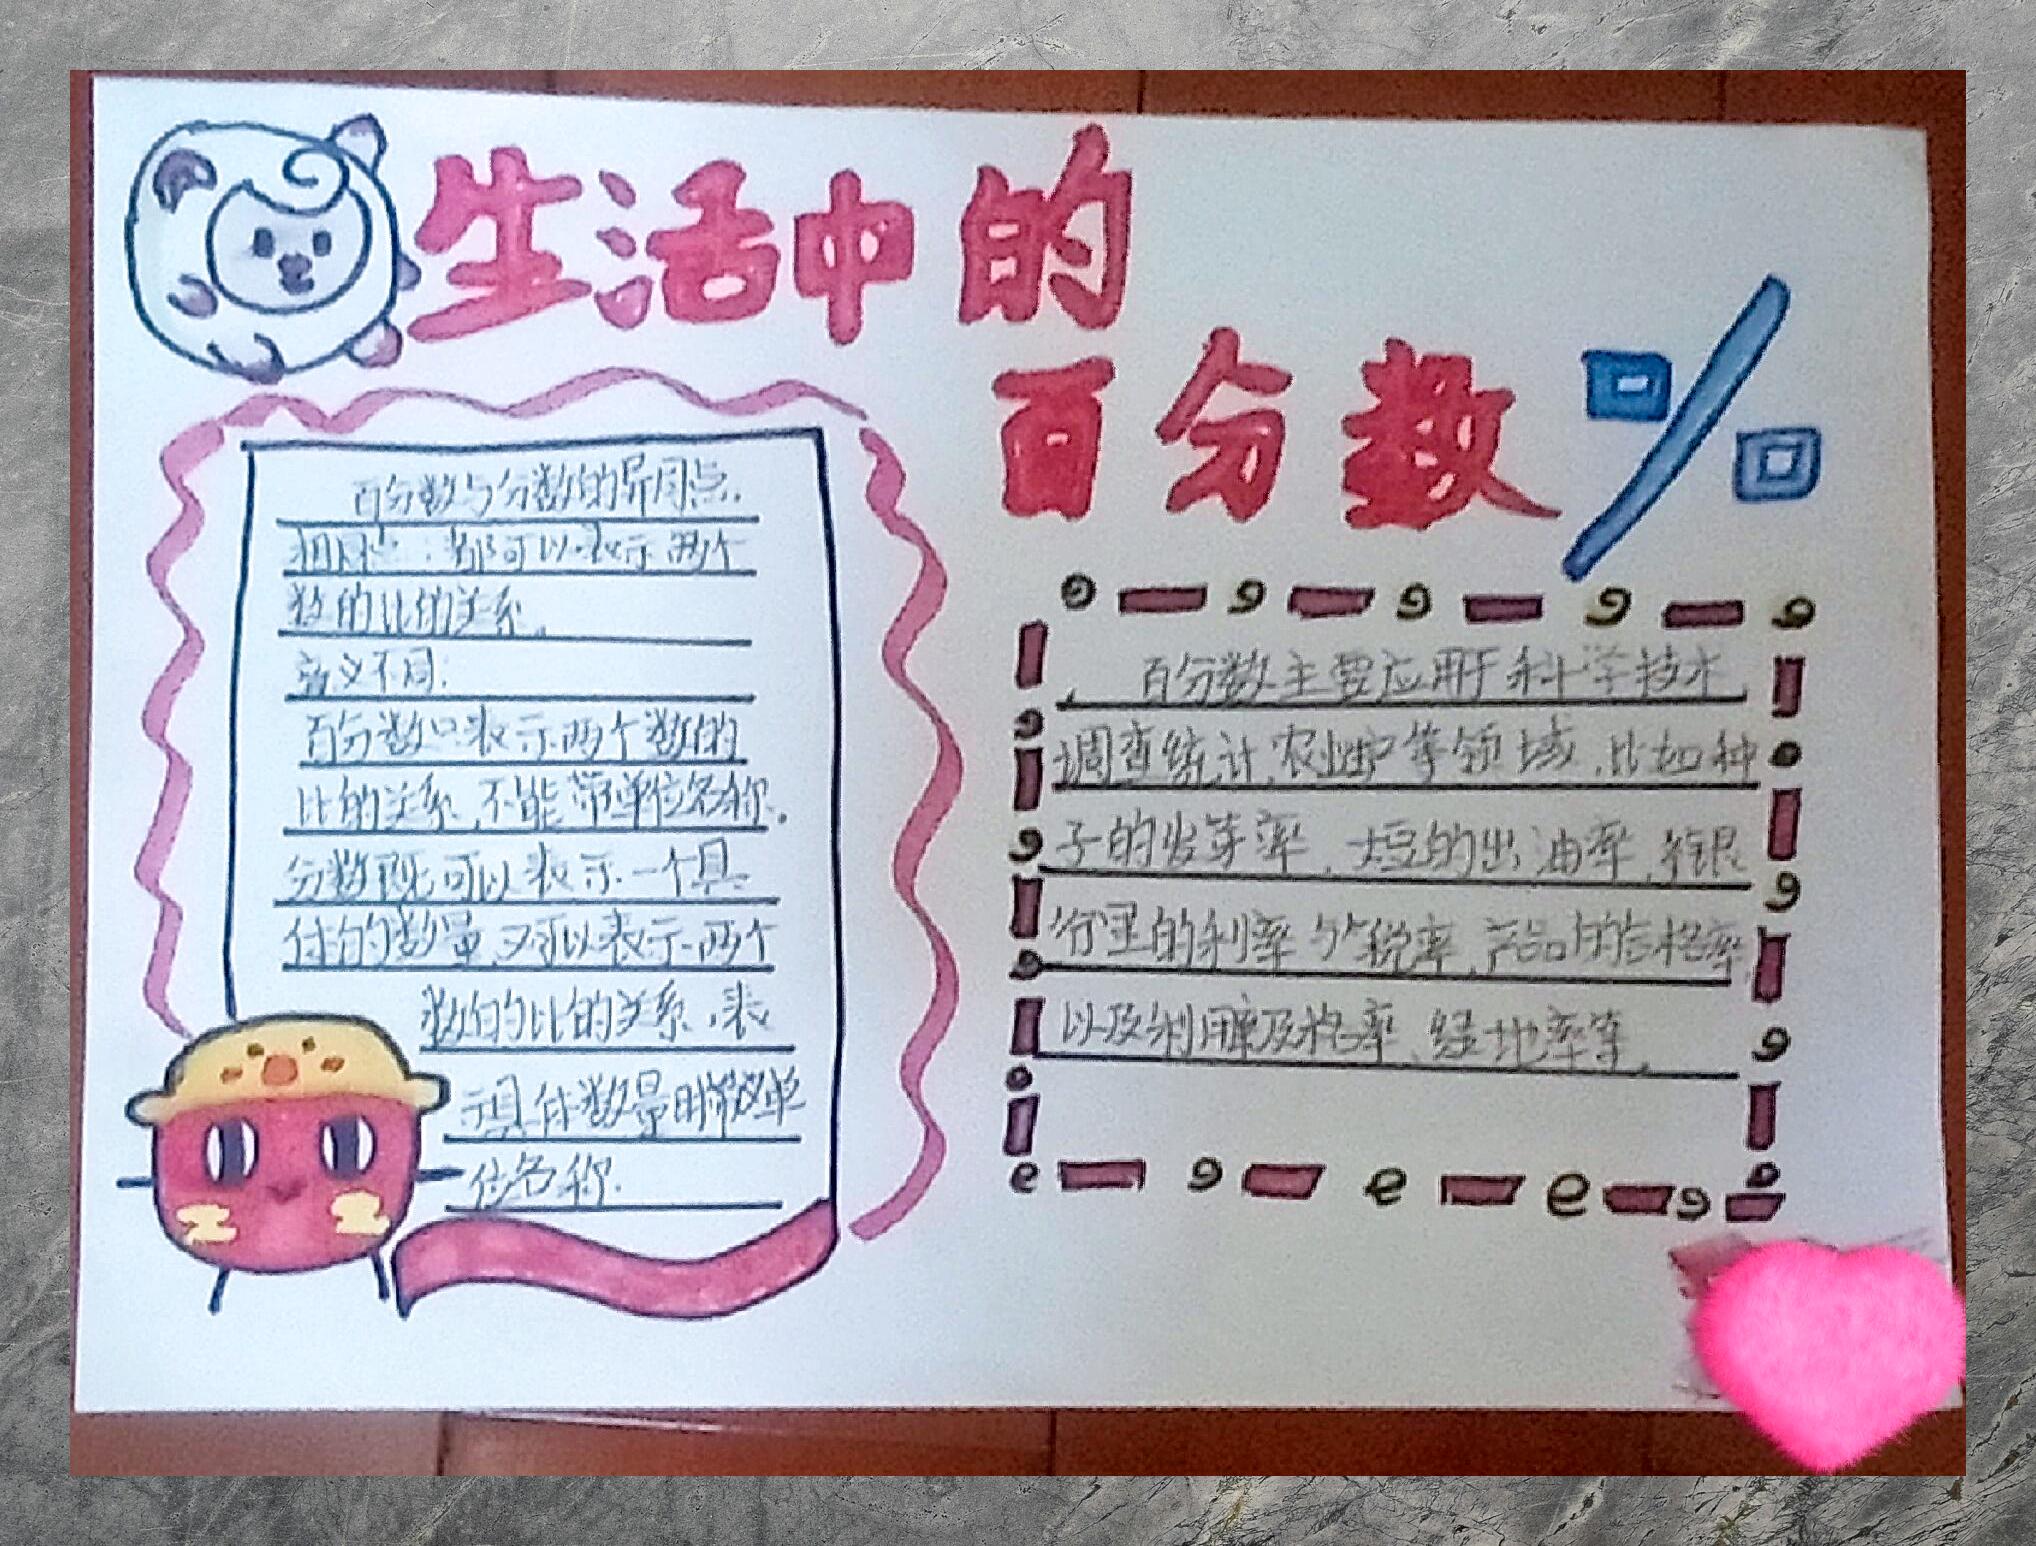 生活中的
百分数 %
百分数与分数的异同点.
相同点:都可以表示两个
数的比的关系.
意义不同:
百分数只表示两个数的
比的关系,不能带单位名称.
分数既可以表示一个具
体的数量,又可以表示两个
数的比的关系,表
示具体数量时带单
位名称.
百分数主要应用于科学技术,
调查统计,农业中等领域,比如种
子的发芽率,大豆的出油率,银
行里的利率,税率,产品的合格率,
以及利用率及格率,绿地率等.